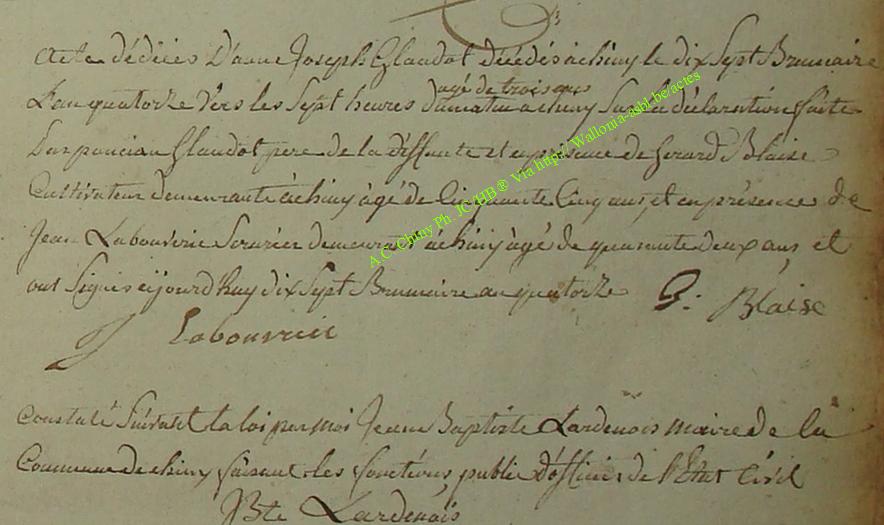 acte dédicès D'anne Joseph Glaudot décédés a chiny le dix Sept Brumaire
agé de trois ans
L'an quatorze vers les Sept heures du matin a chiny Sur la déclaration faite
par poncian Glaudot pere de la deffunte et en présence de Gerard Blaise
Cultivateur demeurante à chiny âgé de Cinquante Cinq ans, et en présences de
Jean Labouverie Serurier demeurant à chiny âgé de quarante deux ans et
ont Signés aijourd huy dix Sept Brumaire an quatorze G: Blaise
J Labouverie
Constaté Suivant la loi par moi Jeane Baptiste Lardenois maire de la
Commune de chiny faisant les fonctions public d'officier de l'Etat Civil
JBte Lardenois
A.C. Chiny Ph. JC HB ® Via http://Wallonia-asbl.be/actes